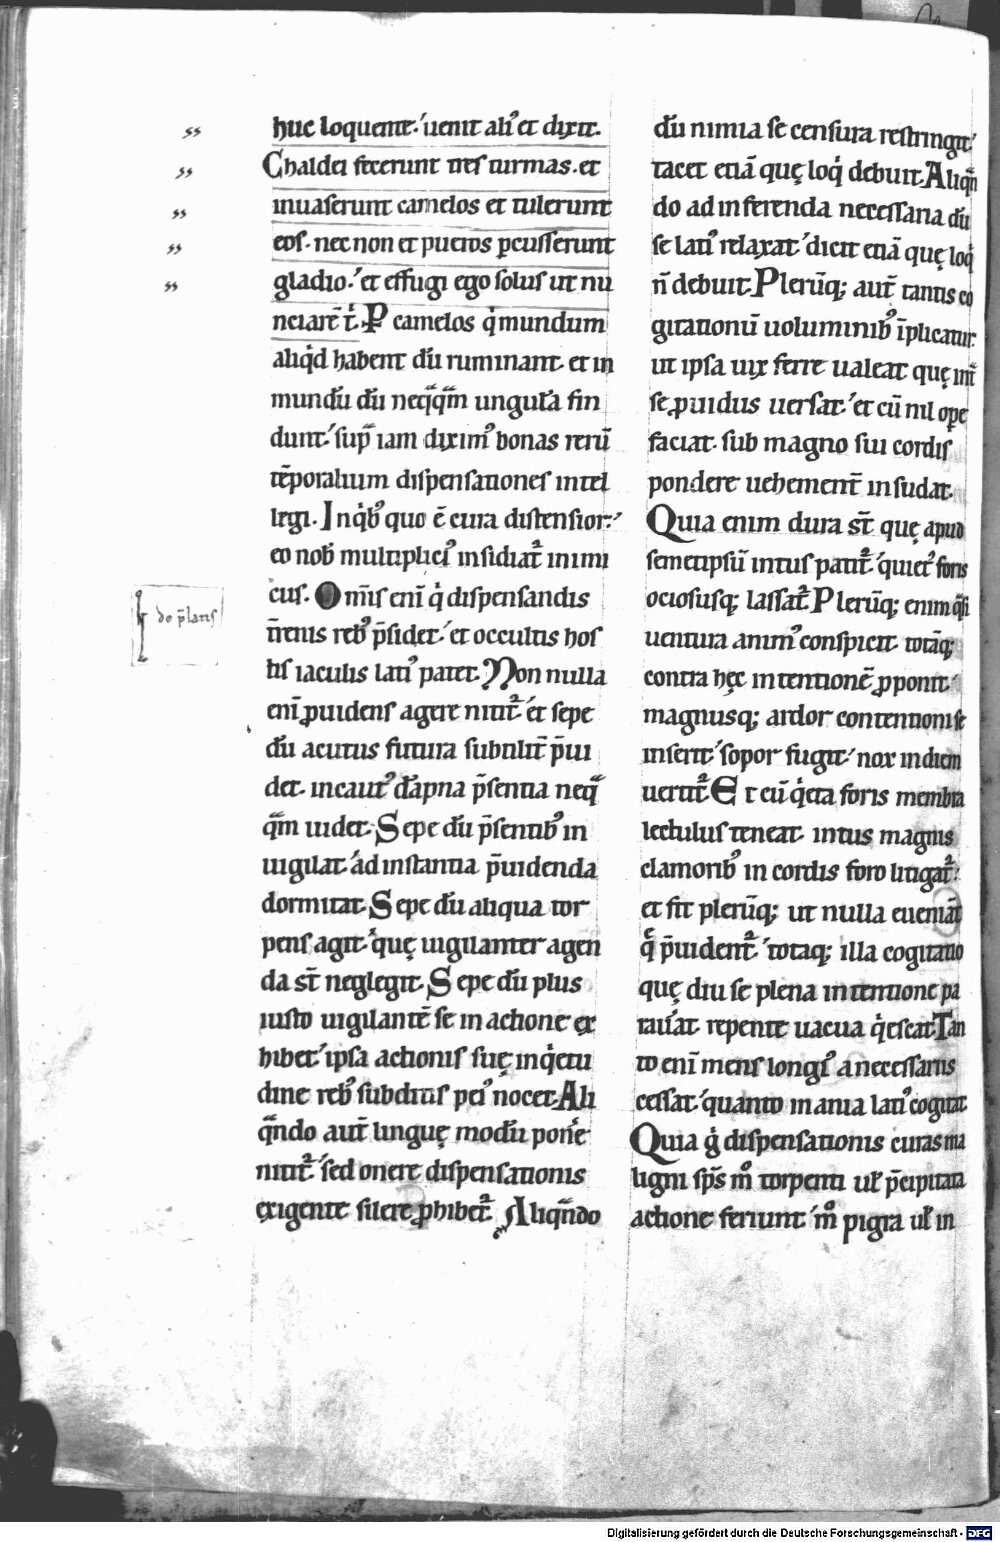 huc loquente.' uenit ali᷒ et dixit.
Chaldei fecerunt tres turmas. et
inuaserunt camelos et tulerunt
eos. nec non et pueros ꝑcusserunt
gladio.' et effugi ego solus ut nu
ciarē t̾. P camelos q̾ mundum
aliq̾d habent dū ruminant. et in
mundū dū neq̄q̄m ungulā fin
dunt.' sup̄ iam dixim᷒ bonas rerū
tēporalium dispensationes intel
legi. Inq̾b᷒ quo ē cura distensior.'
eo nob᷒ multiplici᷒ insidiat᷑ inimi
cus. Om̄is eni q̾ dispensandis
t̄renis reb᷒ p̄sidet.' et occultis hos
tis iaculis lati᷒ patet. Non nulla
eni ꝓuidens agere nitit᷑.' et sepe
dū acutus futura subtilit̄ p̄ui
det. incaut᷒ dāpna p̄sentia neq̄
q̄m uidet. Sepe dū p̄sentib᷒ in
uigilat.' ad instantia p̄uidenda
dormitat. Sepe dū aliqua tor
pens agit.' quę uigilanter agen
da st̄ neglegit. Sepe dū plus
iusto uigilantē se in actione ex
hibet.' ipsa actionis suę inq̾etu
dine reb᷒ subditis pei᷒ nocet. Ali
q̄ndo aut̄ linguę modū ponere
nitit᷑.' sed onere dispensationis
exigente silere ꝓhibet᷑. Aliq̄ndo
de p̄latis
dū nimia se censura restringit.'
tacet etiā quę loq̾ debuit. Aliq̄n
do ad inferenda necessaria dū
se lati᷒ relaxat.' dicit etiā quę loq̾
n̄ debuit. Plerūq; aut̄ tantis co
gitationū uoluminib᷒ īplicatur.
ut ipsa uix ferre ualeat quę int̄
se ꝓuidus uersat.' et cū nil oꝑe
faciat. sub magno sui cordis
pondere uehement̄ insudat.
Quia enim dura st̄ quę apud
semetipsū intus patit᷑.' quiet᷒ foris
ociosusq; lassat᷑. Plerūq; enim q̄si
uentura anim᷒ conspicit. totāq;
contra hęc intentionē ꝓponit.'
magnusq; ardor contentionis se
inserit.' sopor fugit.' nox in diem
uertit᷑. Et cū q̾eta foris membra
lectulus teneat. intus magnis
clamorib᷒ in cordis foro litigat᷑.'
et fit plerūq; ut nulla eueniāt
q̄ p̄uident᷑.' totaq; illa cogitatio
quę diu se plena intentione pa
rauerat. repente uacua q̾escat. Tan
to eni mens longi᷒ a necessariis
cessat.' quanto inania lati᷒ cogitat.
Quia g̾ dispensationis curas ma
ligni sp̄s mͦ torpenti uł p̄cipitata
actione feriunt.' mͦ pigra uł in
Digitalisierung gefördert durch die Deutsche Forschungsgemeinschaft - DFG